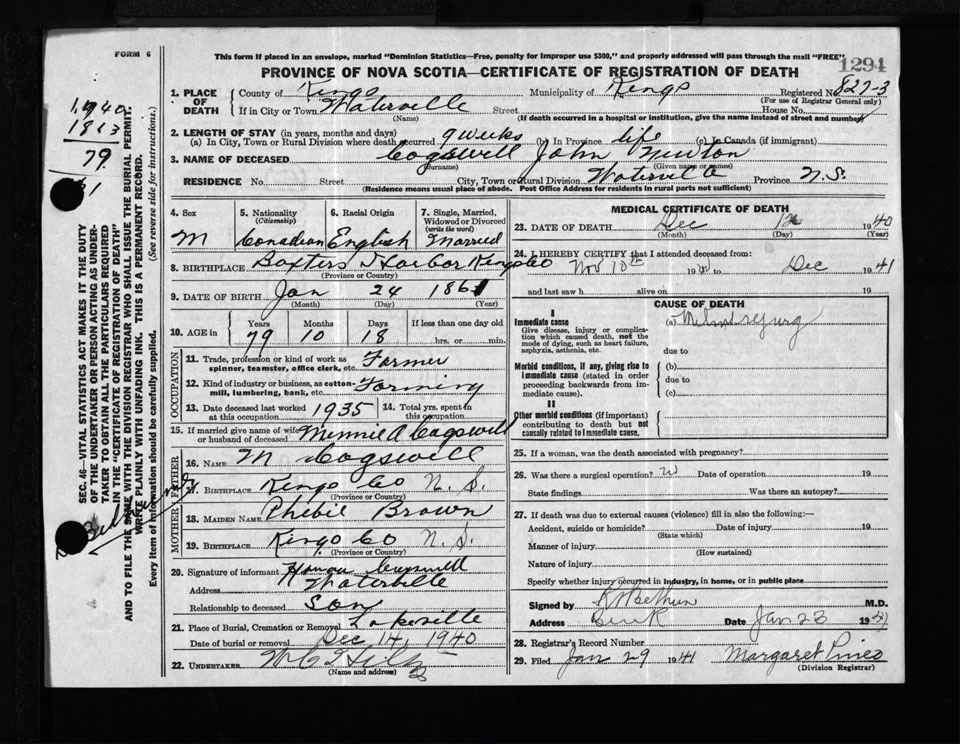 FORM 6
This form if placed in an envelope, marked "Dominion Statistics—Free, penalty for improper use $300," and properly addressed will pass through the mail "FREE"
1294
PROVINCE OF NOVA SCOTIA—CERTIFICATE OF REGISTRATION OF DEATH
1. PLACE OF DEATH
County of Kings Municipality of Kings Registered No. 827-3
(For use of Registrar General only)
If in City or Town Waterville Street House No.
(Name) (If death occurred in a hospital or institution, give the name instead of street and number)
2. LENGTH OF STAY (in years, months and days)
(a) In City, Town or Rural Division where death occurred 9 weeks (b) In Province life (c) In Canada (if immigrant)
3. NAME OF DECEASED Cogswell John Newton
(Surname) (Given name or names)
RESIDENCE No. Street City, Town or Rural Division Waterville Province N.S.
(Residence means usual place of abode. Post Office Address for residents in rural parts not sufficient)
4. Sex M
5. Nationality (Citizenship) Canadian
6. Racial Origin English
7. Single, Married, Widowed or Divorced (write the word) Married
8. BIRTHPLACE Baxters Harbor Kings Co
(Province or Country)
9. DATE OF BIRTH Jan 24 1861
(Month) (Day) (Year)
10. AGE in Years Months Days If less than one day old
79 10 18 hrs. or min.
OCCUPATION
11. Trade, profession or kind of work as spinner, teamster, office clerk, etc. Farmer
12. Kind of industry or business, as cotton-mill, lumbering, bank, etc. Farming
13. Date deceased last worked at this occupation 1935
14. Total yrs. spent in this occupation
15. If married give name of wife or husband of deceased Minnie A Cogswell
FATHER
16. NAME M Cogswell
17. BIRTHPLACE Kings Co N.S.
(Province or Country)
MOTHER
18. MAIDEN NAME Phebie Brown
19. BIRTHPLACE Kings Co N.S.
(Province or Country)
20. Signature of informant
Address Waterville
Relationship to deceased Son
21. Place of Burial, Cremation or Removal Lakeville
Date of burial or removal Dec 14, 1940
22. UNDERTAKER
(Name and address)
MEDICAL CERTIFICATE OF DEATH
23. DATE OF DEATH Dec 12 1940
(Month) (Day) (Year)
24. I HEREBY CERTIFY that I attended deceased from:
Nov 10th 19 to Dec 1941
and last saw h alive on 19
CAUSE OF DEATH
I
Immediate cause (a)
Give disease, injury or complication which caused death, not the mode of dying, such as heart failure, asphyxia, asthenia, etc.
due to
Morbid conditions, if any, giving rise to immediate cause (stated in order proceeding backwards from immediate cause).
(b)
due to
(c)
II
Other morbid conditions (if important) contributing to death but not causally related to immediate cause.
25. If a woman, was the death associated with pregnancy?
26. Was there a surgical operation? Date of operation 19
State findings Was there an autopsy?
27. If death was due to external causes (violence) fill in also the following:—
Accident, suicide or homicide? Date of injury 19
(State which)
Manner of injury
(How sustained)
Nature of injury
Specify whether injury occurred in industry, in home, or in public place
Signed by M.D.
Address Date Jan 23 1941
28. Registrar's Record Number
29. Filed Jan 29 1941 Margaret Pineo
(Division Registrar)
1940
79
SEC. 46—VITAL STATISTICS ACT MAKES IT THE DUTY
OF THE UNDERTAKER OR PERSON ACTING AS UNDERTAKER TO OBTAIN ALL THE PARTICULARS REQUIRED
IN THE "CERTIFICATE OF REGISTRATION OF DEATH"
AND TO FILE THE SAME WITH THE DIVISION REGISTRAR WHO SHALL ISSUE THE BURIAL PERMIT.
WRITE PLAINLY WITH UNFADING INK. THIS IS A PERMANENT RECORD.
Every item of information should be carefully supplied. (See reverse side for instructions).